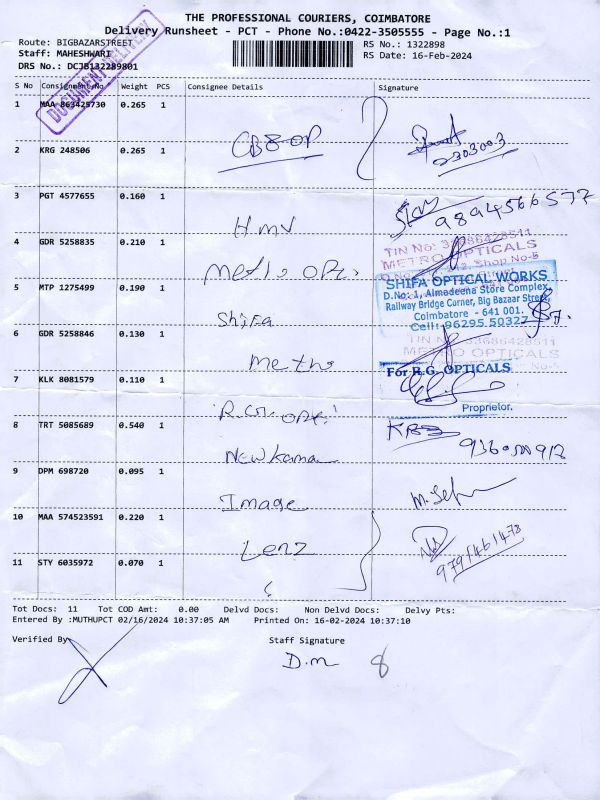 THE PROFESSIONAL COURIERS, COIMBATORE
Delivery Runsheet - PCT - Phone No.:0422-3505555 - Page No.:1
Route: BIGBAZARSTREET
RS No.: 1322898
Staff: MAHESHWARI
RS Date: 16-Feb-2024
DRS No.: DCJB132289801
DOCUMENT DELIVERY
S No Consignment No Weight PCS Consignee Details Signature
1 MAA 863425730 0.265 1
2 KRG 248506 0.265 1
2303003
3 PGT 4577655 0.160 1
H.mv
9894566577
4 GDR 5258835 0.210 1
Metro opti.
TIN No: 33686428511
METRO OPTICALS
Shop No-5
5 MTP 1275499 0.190 1
Shifa
SHIFA OPTICAL WORKS
D.No: 1, Almadeena Store Complex,
Railway Bridge Corner, Big Bazaar Street,
Coimbatore - 641 001.
Cell: 96295 50327
6 GDR 5258846 0.130 1
Metro
TIN No: 33686428511
METRO OPTICALS
7 KLK 8081579 0.110 1
R.G. opti
For R.G. OPTICALS
Proprietor.
8 TRT 5085689 0.540 1
New kamar
9 DPM 698720 0.095 1
Image
10 MAA 574523591 0.220 1
Lenz
9791461473
11 STY 6035972 0.070 1
Tot Docs: 11 Tot COD Amt: 0.00 Delvd Docs: Non Delvd Docs: Delvy Pts:
Entered By :MUTHUPCT 02/16/2024 10:37:05 AM Printed On: 16-02-2024 10:37:10
Verified By
Staff Signature
D.m 8